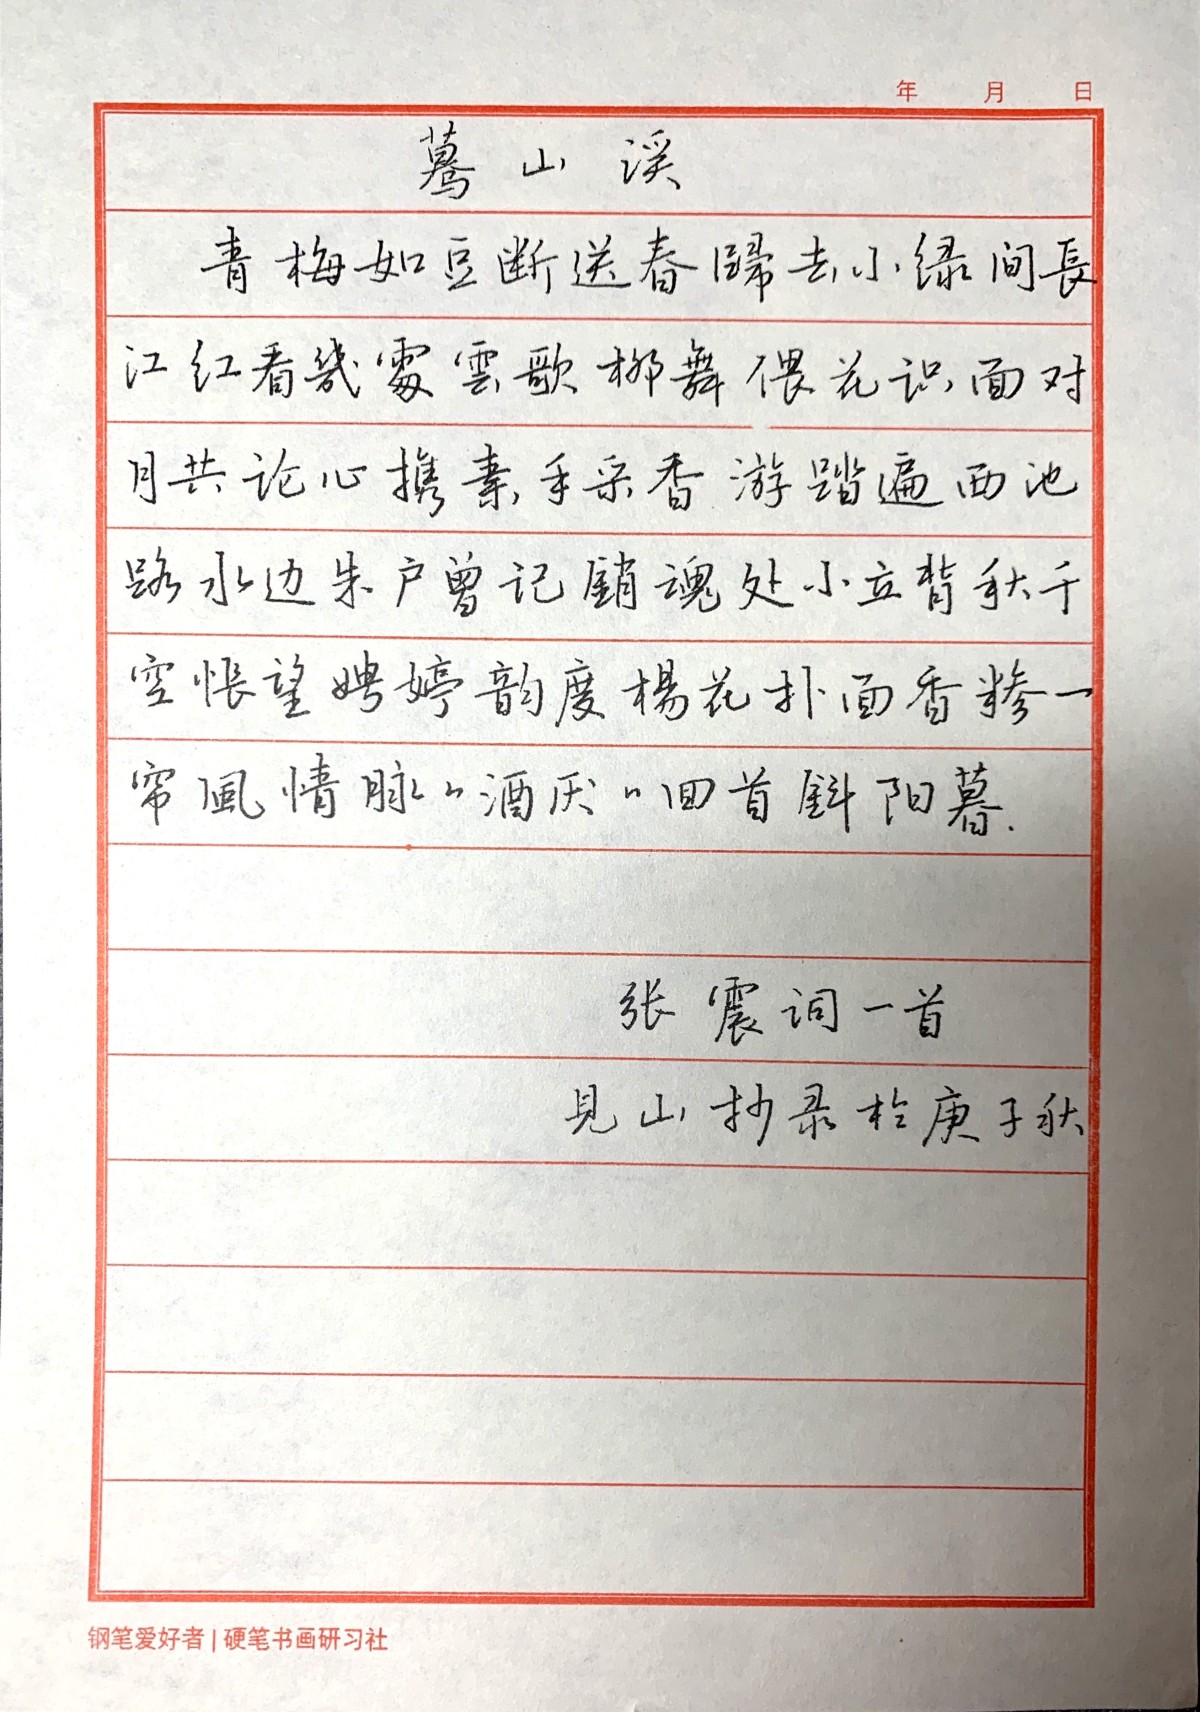 年 月 日
蓦山溪
青梅如豆断送春歸去小绿间長
江红看幾處雲歌柳舞偎花识面对
月共论心携素手采香游踏遍西池
路水边朱户曾记銷魂处小立背秋千
空怅望娉婷韵度楊花扑面香糁一
帘風情脉〃酒厌〃回首斜阳暮.
张震词一首
見山抄录於庚子秋
钢笔爱好者|硬笔书画研习社